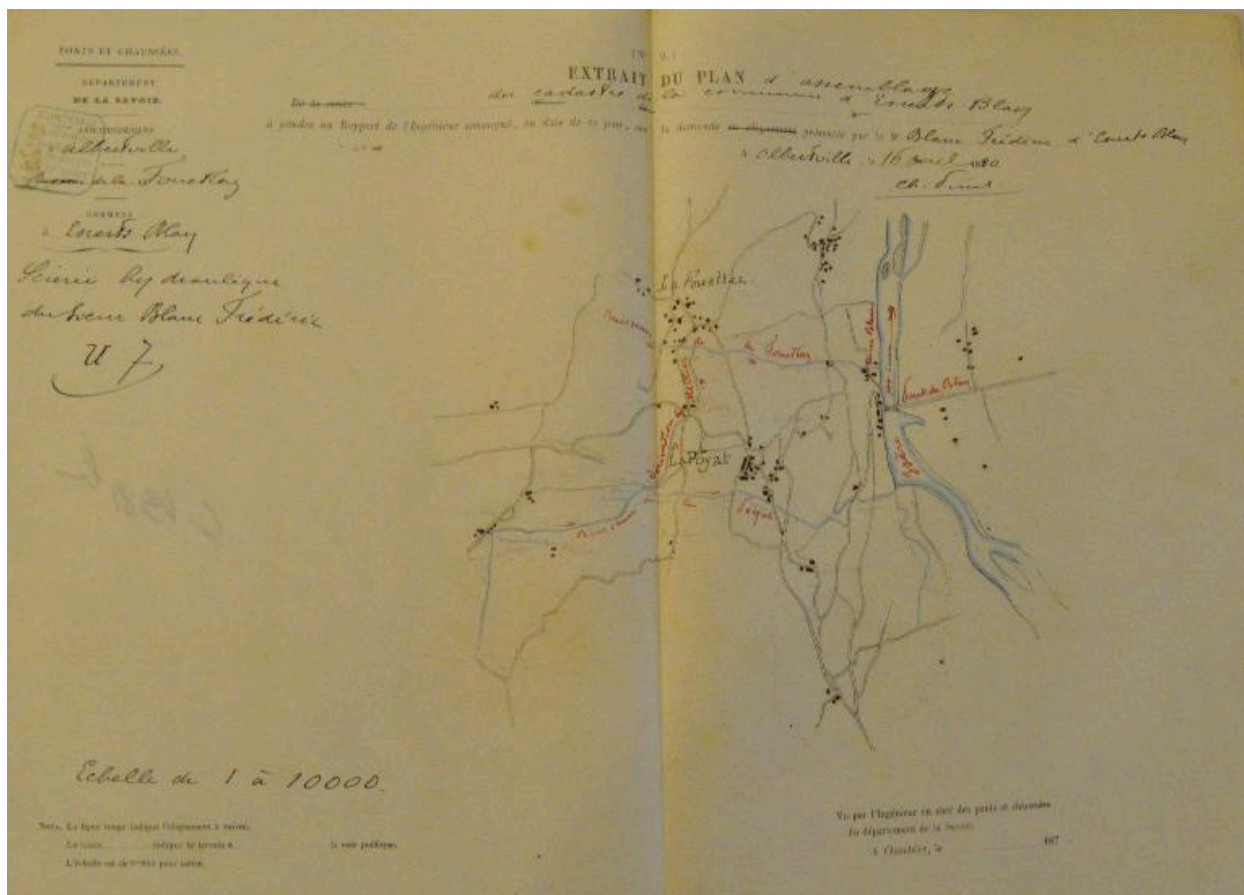 PONTS ET CHAUSSÉES.
DÉPARTEMENT
DE LA SAVOIE.
ARRONDISSEMENT
d'albertville
de la Fouettaz
COMMUNE
d' Esserts Blay
Scierie hydraulique
du Sieur Blanc Frédéric
U 7
EXTRAIT DU PLAN d'assemblage
du cadastre de la commune d'Esserts Blay
De la route
à joindre au Rapport de l'Ingénieur soussigné, en date de ce jour, sur la demande présentée par le Sr Blanc Frédéric d'Esserts Blay
albertville 16
La Fouettaz
Ruisseau de la Fouettaz
Blanc
Pont de Blay
Isère
Dérivation
La Poyat
Ruisseau de la Poyat
Echelle de 1 à 10000.
Nota. La ligne rouge indique l'alignement à suivre.
La teinte indique le terrain à la voie publique.
L'échelle est de pour mètre.
Vu par l'Ingénieur en chef des ponts et chaussées
du département de la Savoie.
A Chambéry, le 187